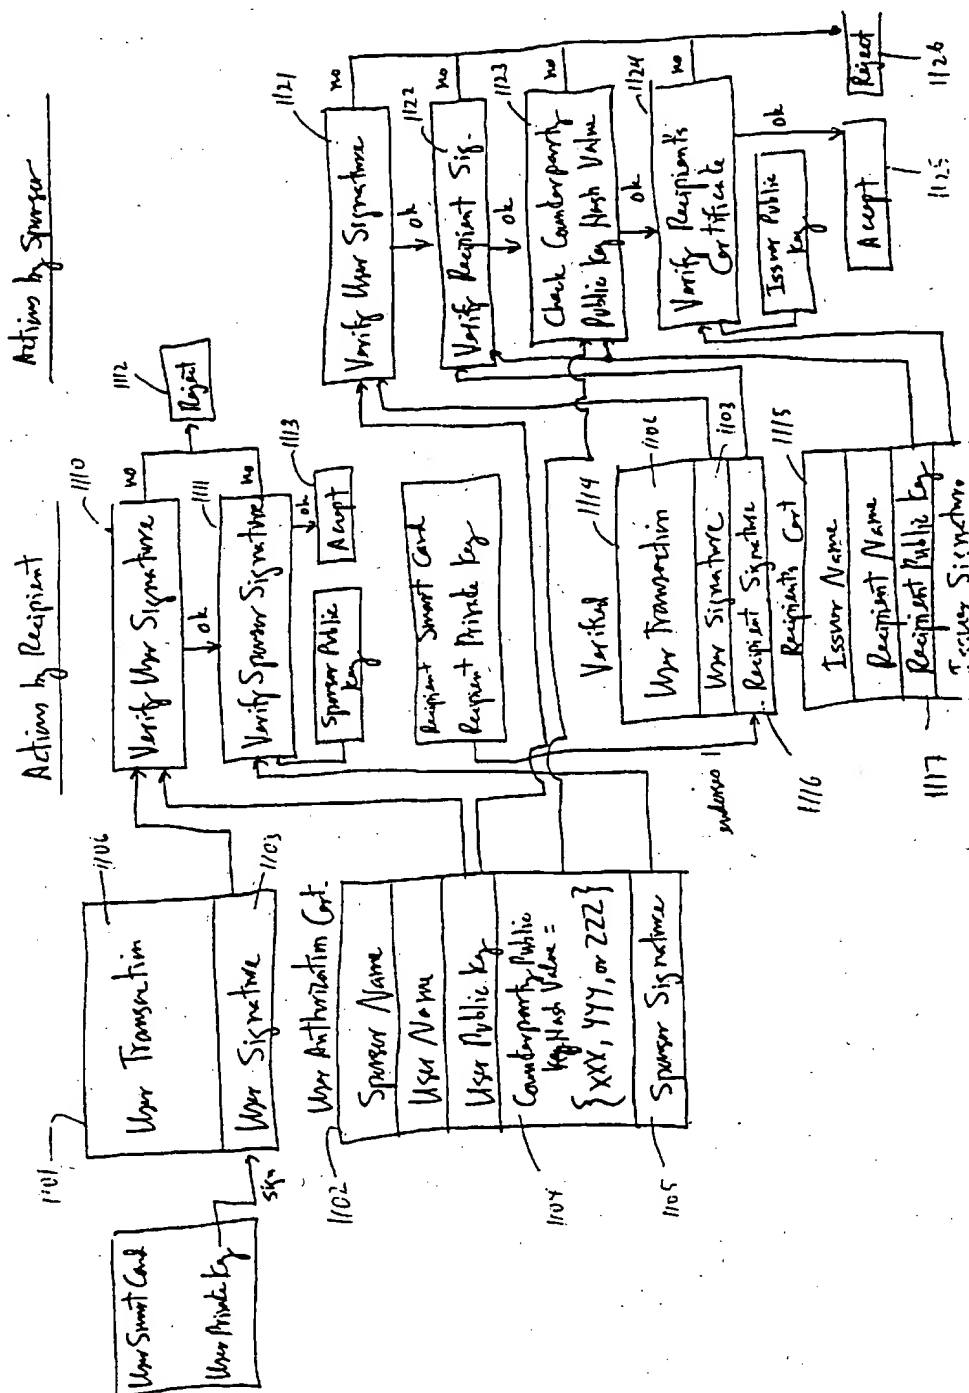 User Smart Card
User Private Key
sign
1101
User Transaction
1106
User Signature
1103
User Authorization Cert.
1102
Sponsor Name
User Name
User Public Key
Counterparty Public
Key Hash Value =
{XXX, YYY, or ZZZ}
1104
Sponsor Signature
1105
Actions by Recipient
Verify User Signature
1110
no
ok
Verify Sponsor Signature
1111
no
Reject
1112
ok
Accept
1113
Sponsor Public
Key
Recipient Smart Card
Recipient Private Key
endorses
Verified
1114
User Transaction
1106
User Signature
1103
Recipient Signature
1116
Recipient's Cert
1115
Issuer Name
Recipient Name
Recipient Public Key
1117
Issuer Signature
Actions by Sponsor
Verify User Signature
1121
no
ok
Verify Recipient Sig.
1122
no
ok
Check Counterparty
Public Key Hash Value
1123
no
ok
Verify Recipient's
Certificate
1124
no
ok
Issuer Public
Key
Accept
1125
Reject
1126